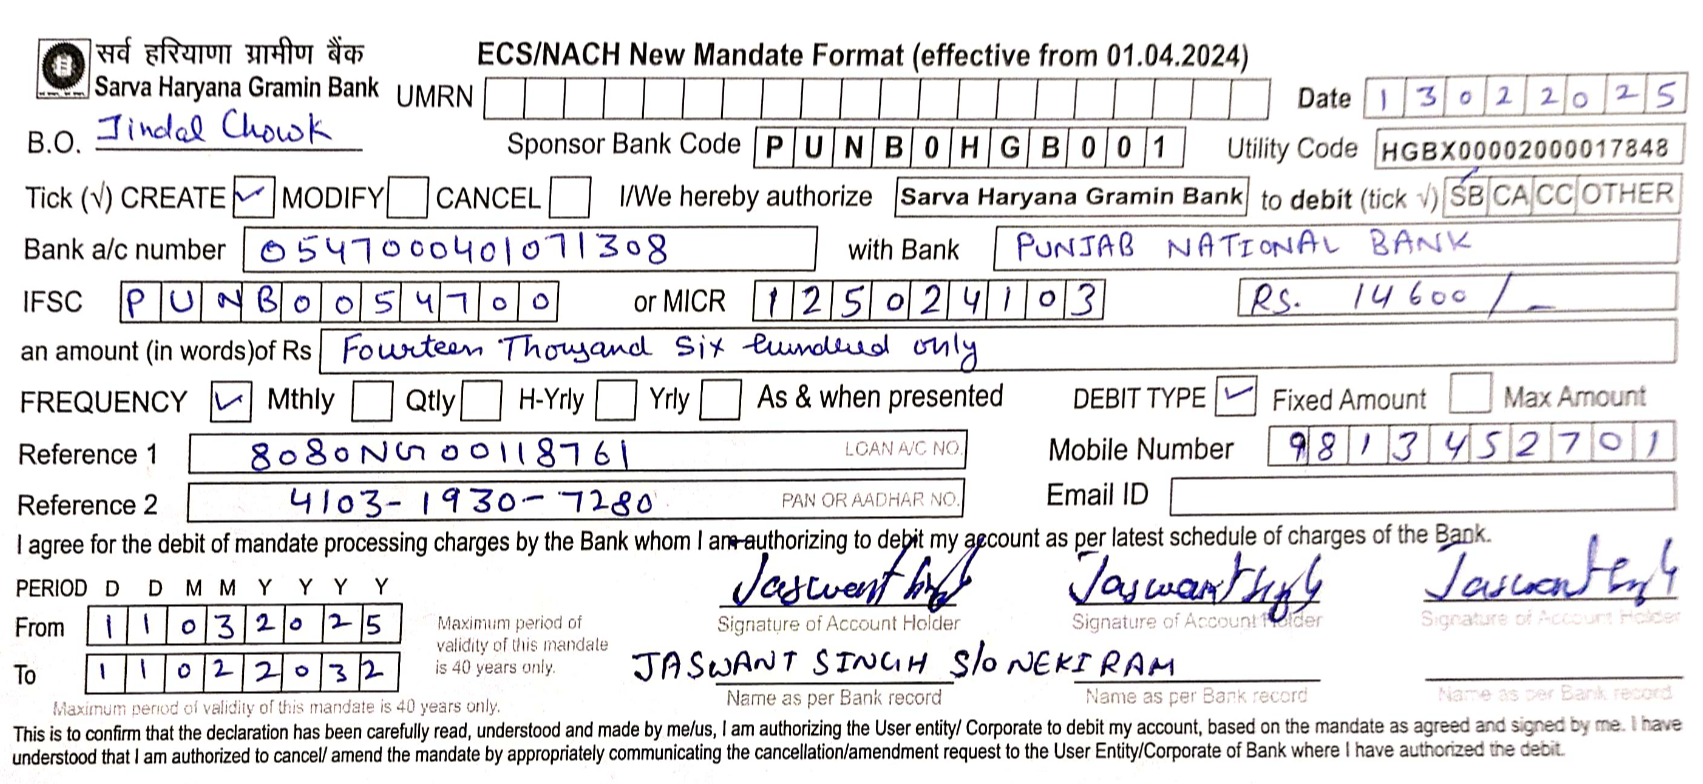 सर्व हरियाणा ग्रामीण बैंक
Sarva Haryana Gramin Bank
ECS/NACH New Mandate Format (effective from 01.04.2024)
UMRN
Date 13022025
B.O. Jindal Chowk
Sponsor Bank Code PUNB0HGB001
Utility Code HGBX00002000017848
Tick (√) CREATE ✓ MODIFY CANCEL I/We hereby authorize Sarva Haryana Gramin Bank to debit (tick √) SB CA CC OTHER
Bank a/c number 0547000401071308 with Bank PUNJAB NATIONAL BANK
IFSC PUNB0054700 or MICR 125024103 Rs. 14600/_
an amount (in words)of Rs Fourteen Thousand Six hundered only
FREQUENCY ✓ Mthly Qtly H-Yrly Yrly As & when presented DEBIT TYPE ✓ Fixed Amount Max Amount
Reference 1 8080NG00118761 LOAN A/C NO. Mobile Number 9813452701
Reference 2 4103-1930-7280 PAN OR AADHAR NO. Email ID
I agree for the debit of mandate processing charges by the Bank whom I am authorizing to debit my account as per latest schedule of charges of the Bank.
PERIOD D D M M Y Y Y Y
From 11032025
To 11022032
Maximum period of validity of this mandate is 40 years only.
Maximum period of
validity of this mandate
is 40 years only.
Jaswant Singh Jaswant Singh Jaswant Singh
Signature of Account Holder Signature of Account Holder Signature of Account Holder
JASWANT SINGH S/O NEKI RAM
Name as per Bank record Name as per Bank record Name as per Bank record
This is to confirm that the declaration has been carefully read, understood and made by me/us, I am authorizing the User entity/ Corporate to debit my account, based on the mandate as agreed and signed by me. I have
understood that I am authorized to cancel/ amend the mandate by appropriately communicating the cancellation/amendment request to the User Entity/Corporate of Bank where I have authorized the debit.